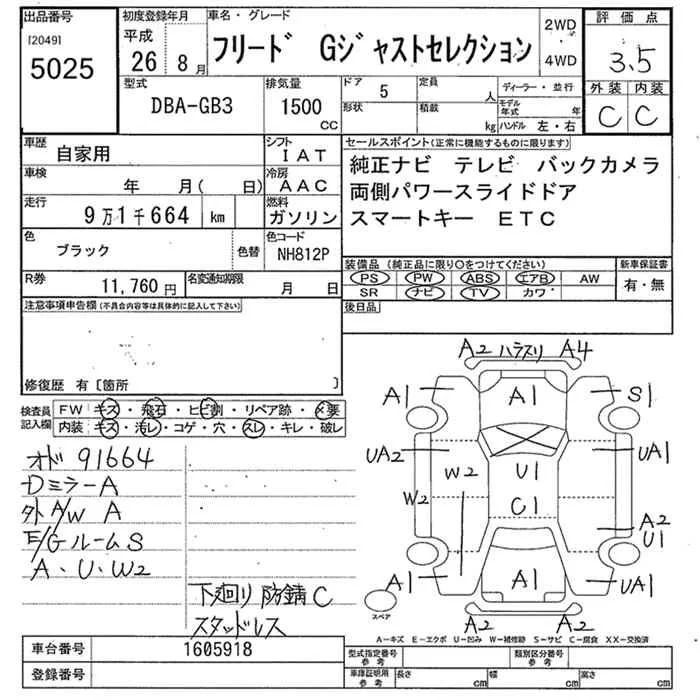 出品番号
[2049]
5025
初度登録年月
平成
26 8月
車名・グレード
フリード Gジャストセレクション
2WD
・
4WD
評価点
3.5
外装 内装
C C
型式
DBA-GB3
排気量
1500
CC
ドア
5
形状
定員
人
積載
kg
ディーラー・並行
モデル年式 年
ハンドル 左・右
車歴
自家用
シフト
IAT
車検
年 月( 日)
冷房
AAC
走行
9万1千664 km
燃料
ガソリン
色
ブラック
色替
色コード
NH812P
R券
11,760円
名変通知期限
月 日
セールスポイント(正常に機能するものに限ります)
純正ナビ テレビ バックカメラ
両側パワースライドドア
スマートキー ETC
装備品(純正品に限り○をつけてください)
PS PW ABS エアB AW
SR ナビ TV カワ
新車保証書
有・無
後日品
注意事項申告欄(不具合内容等は具体的に記入して下さい)
修復歴 有〔箇所 〕
検査員
記入欄
FW キズ・飛石・ヒビ割・リペア跡・メ要
内装 キズ・汚レ・コゲ・穴・スレ・キレ・破レ
オド 91664
Dミラー A
外 A/W A
E/Gルーム S
A・U・W2
下廻り 防錆 C
スタッドレス
A2 ハラスリ A4
A1 A1 S1
UA2 UA1
W2 W2 U1
C1
A2
U1
A1 A1 UA1
A2 A2
スペア
A−キズ E−エクボ U−凹み W−補修跡 S−サビ C−腐食 XX−交換済
車台番号
1605918
登録番号
型式指定番号
参考
類別区分番号
参考
車庫証明用
参考
長さ cm 幅 cm 高さ cm